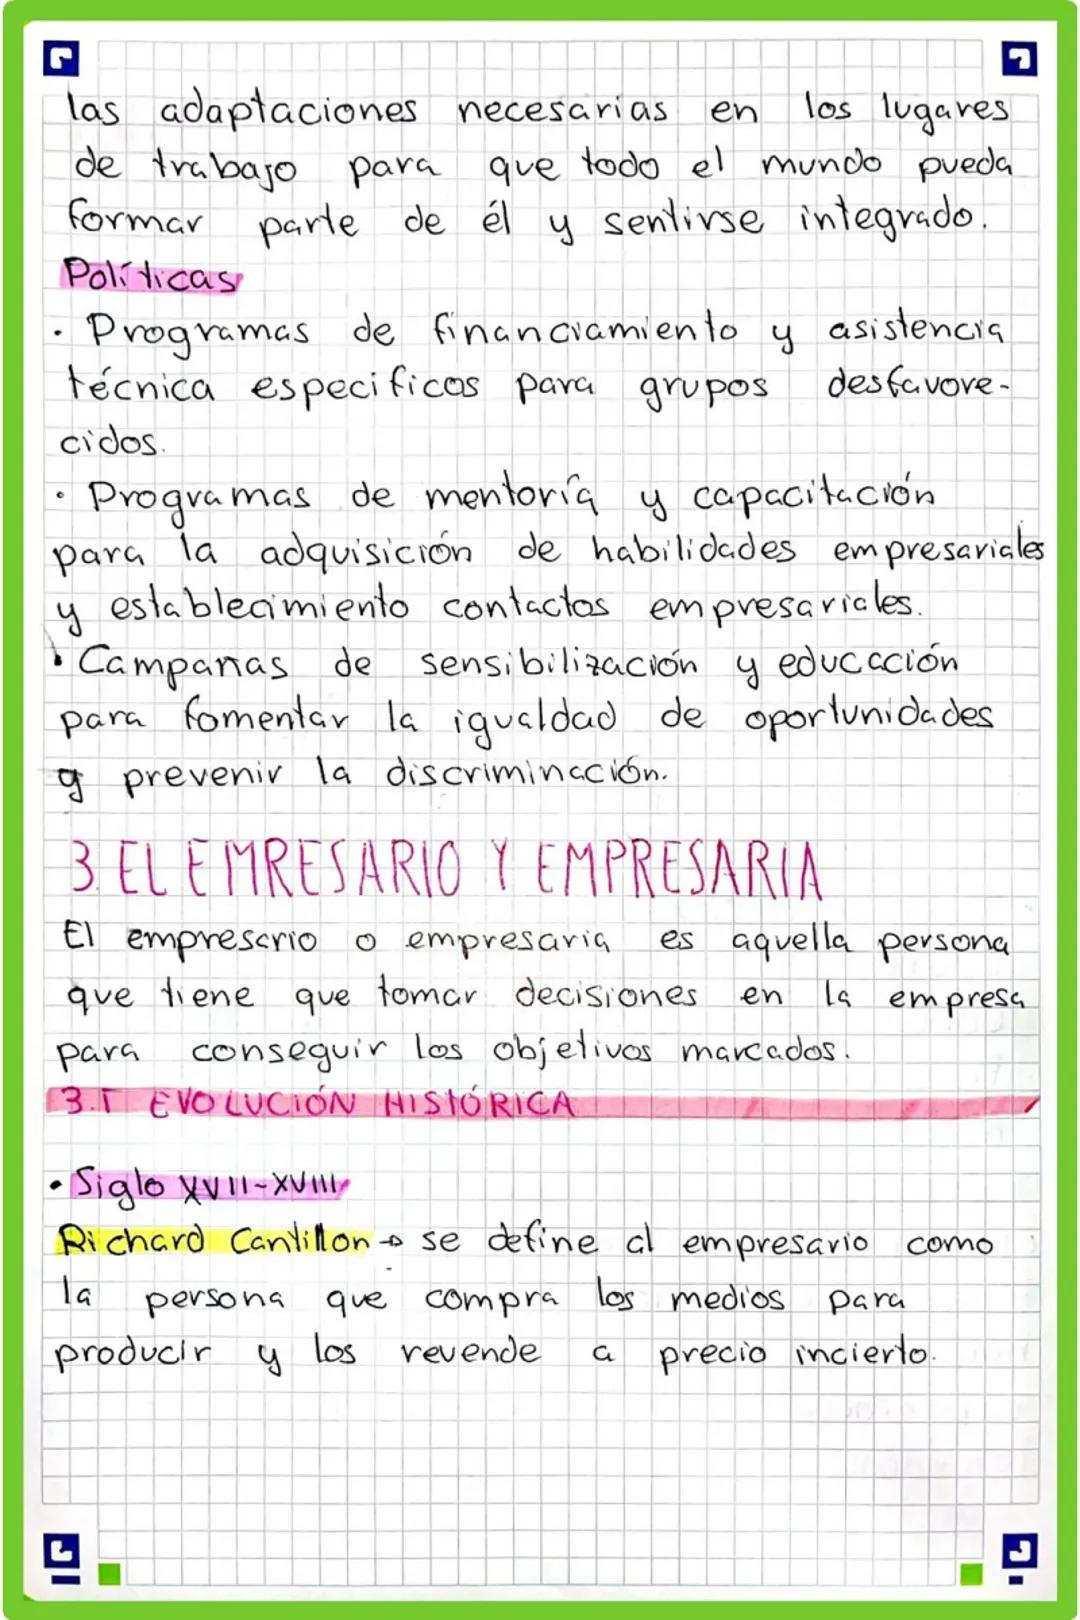 las adaptaciones necesarias en los lugares
de trabajo para que todo el mundo pueda
formar parte de él y sentirse integrado.
Políticas
· Programas de financiamiento y asistencia
técnica especificos para grupos desfavore-
cidos.
· Programas de mentoría y capacitación
para la adquisición de habilidades empresariales
y establecimiento contactos empresariales.
· Campañas de sensibilización y educación
para fomentar la igualdad de oportunidades
y prevenir la discriminación.
3. EL EMRESARIO Y EMPRESARIA
El empresario o empresaria es aquella persona
que tiene que tomar decisiones en la empresa
para conseguir los objetivos marcados.
3.1 EVOLUCIÓN HISTÓRICA
· Siglo XVII-XVIII
Richard Cantillon → se define al empresario como
la persona que compra los medios para
producir y los revende a precio incierto.